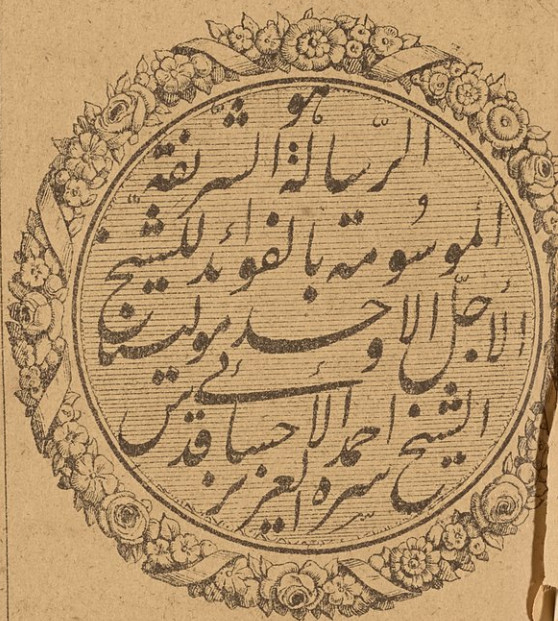 هو
الرّسالة الشّريفة
الموسومة بالفوائد للشيخ
الأجلّ الاوحد مولينا
الشيخ احمد الاحسائي قدس
سره العزيز